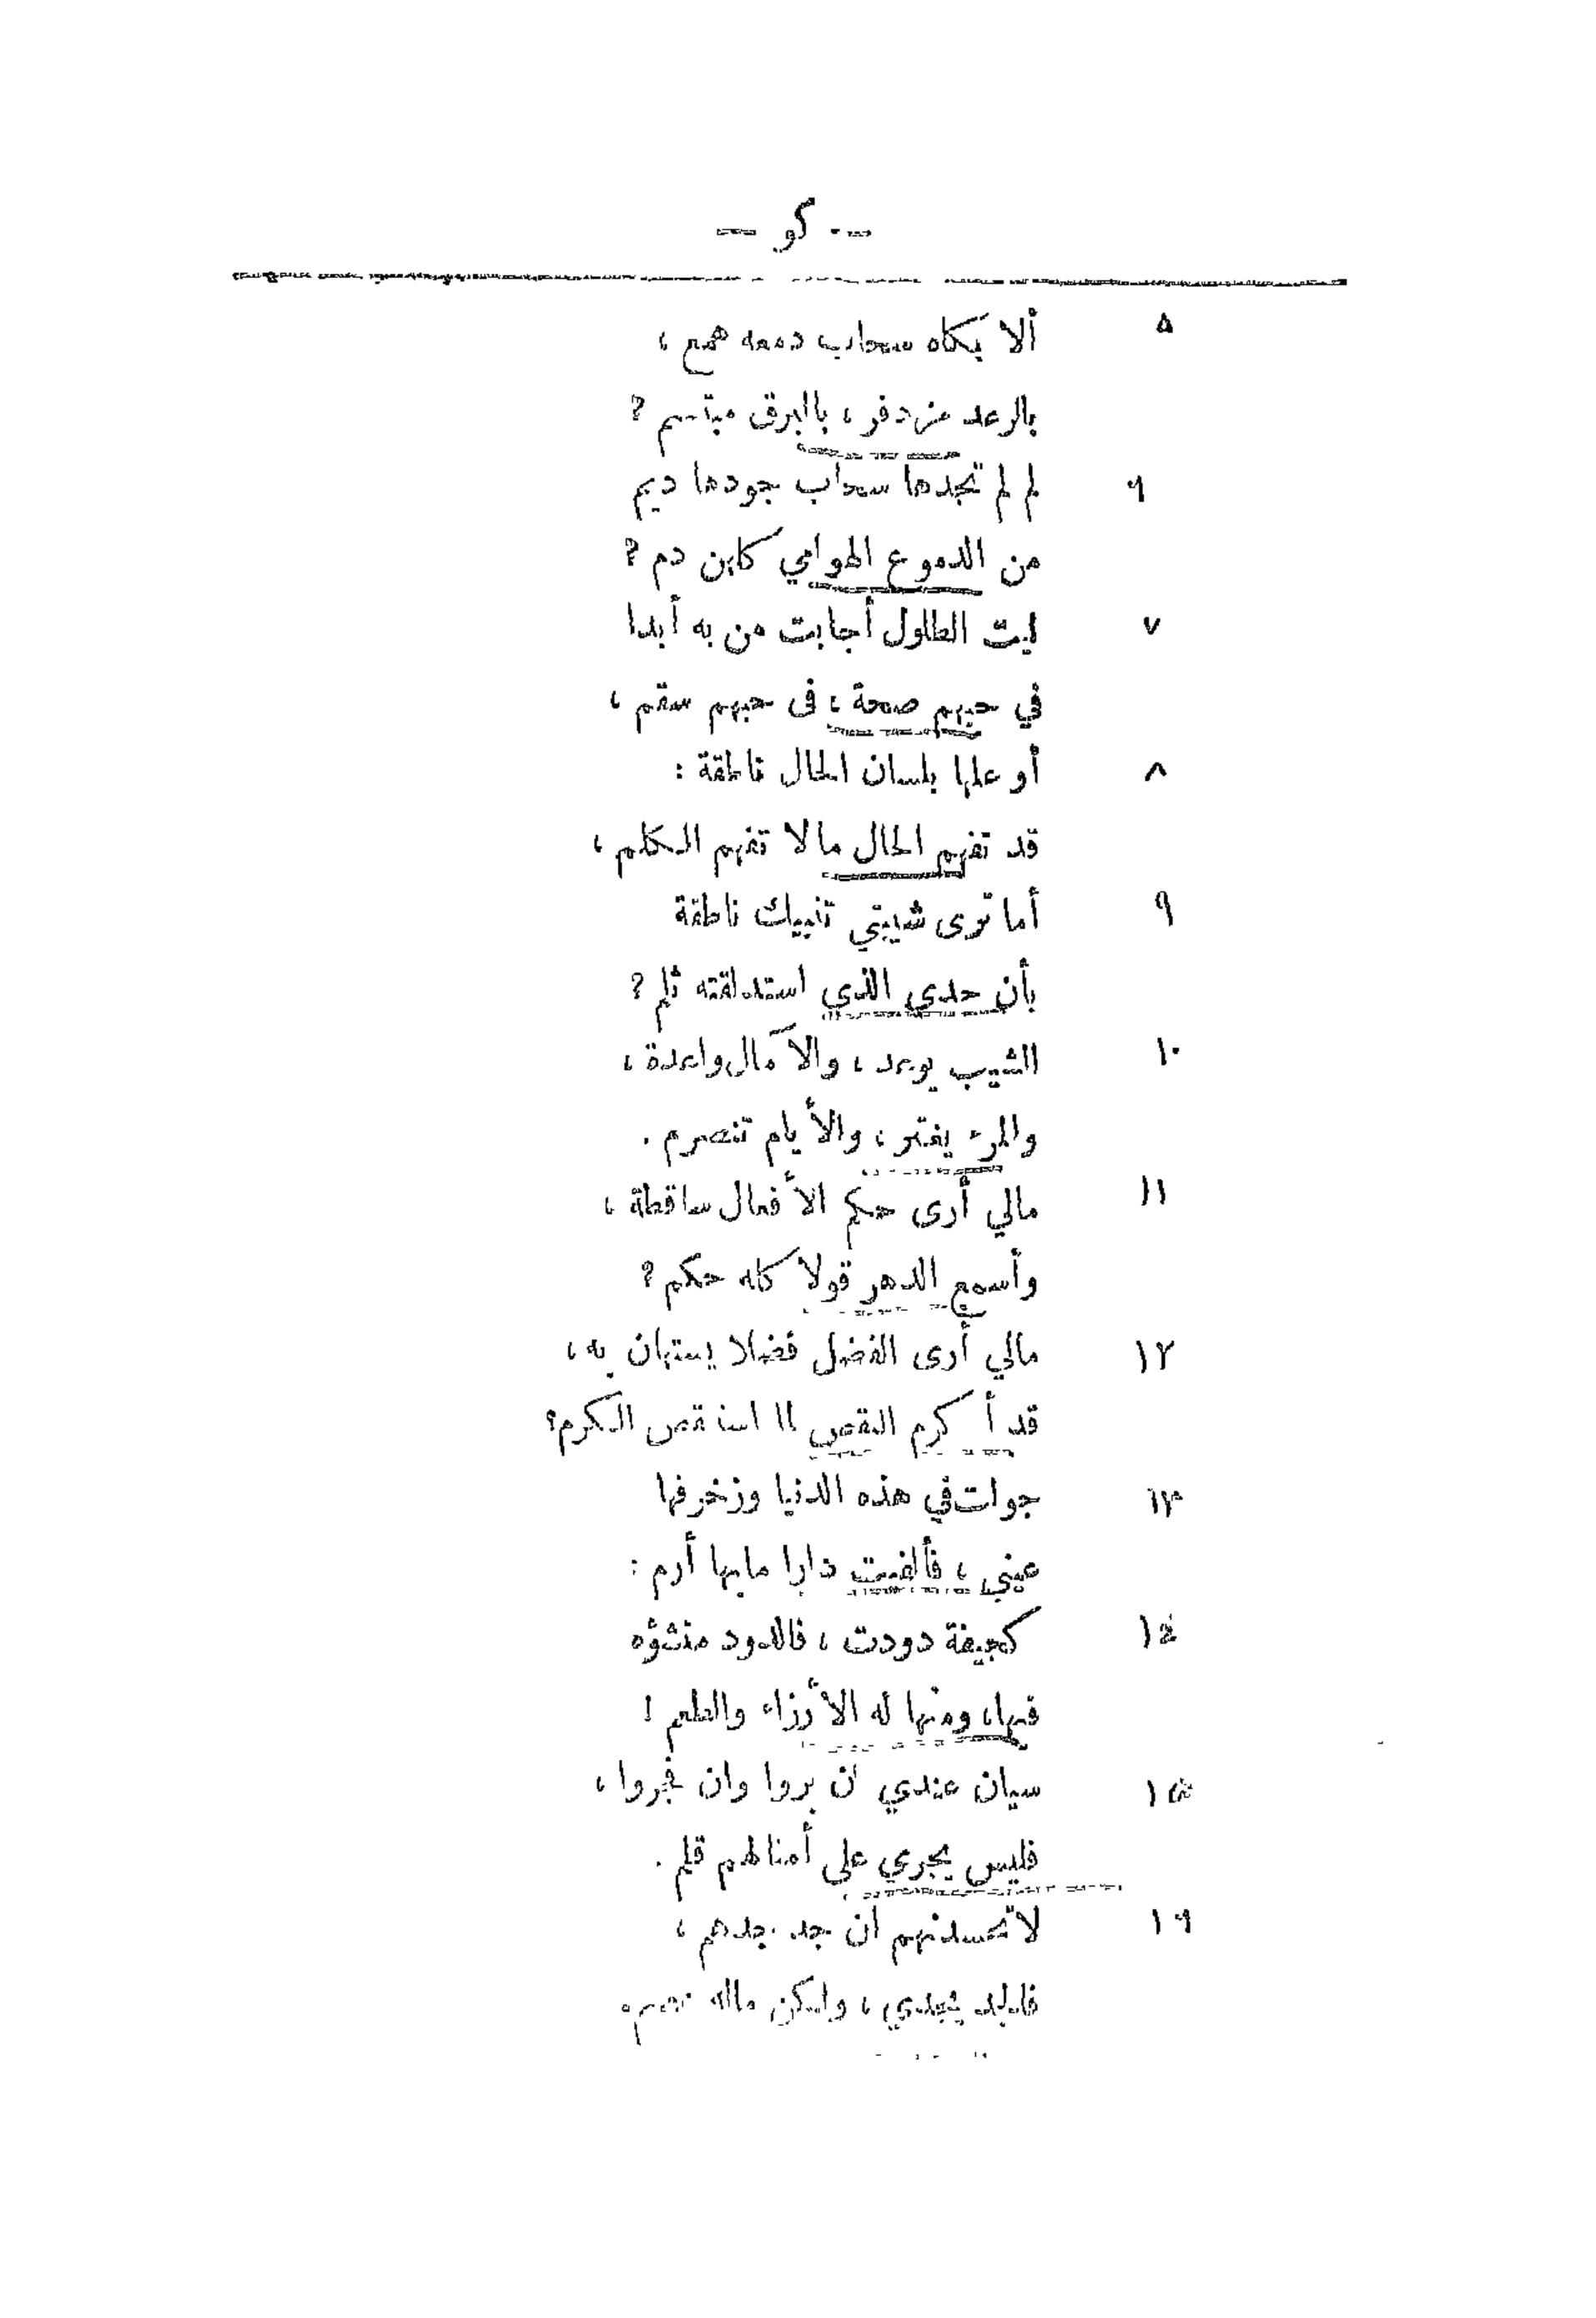 — كو —
٥ ألا بكاه سحاب دمعه همع ،
بالرعد مزدفر ، بالبرق مبتسم ؟
٦ لم لم تجدها سحاب جودها ديم
من الدموع الهوامي كابن دم ؟
٧ ليت الطلول أجابت من به أبدا
في حبهم صحة ، فى حبهم سقم ،
٨ أو علها بلسان الحال ناطقة :
قد تفهم الحال مالا تفهم الكلم ،
٩ أما ترى شيبتي تنبيك ناطقة
بأن حدي الذي استدلقته ثلم ؟
١٠ الشيب يوعد ، والآمال واعدة ،
والمرء يغتر ، والأيام تنصرم .
١١ مالي أرى حكم الأفعال ساقطة ،
وأسمع الدهر قولا كله حكم ؟
١٢ مالي أرى الفضل فضلا يستهان به ،
قد أكرم النقص لما استنقص الكرم ؟
١٣ جولت في هذه الدنيا وزخرفها
عيني ، فألفيت دارا ما بها أرم :
١٤ كجيفة دودت ، فالدود منشؤه
فيها ، ومنها له الأرزاء والطعم !
١٥ سيان عندي ان بروا وان فجروا ،
فليس يجري على أمثالهم قلم .
١٦ لا تحسدنهم ان جد جدهم ،
فالجد يجدي ، ولكن ماله